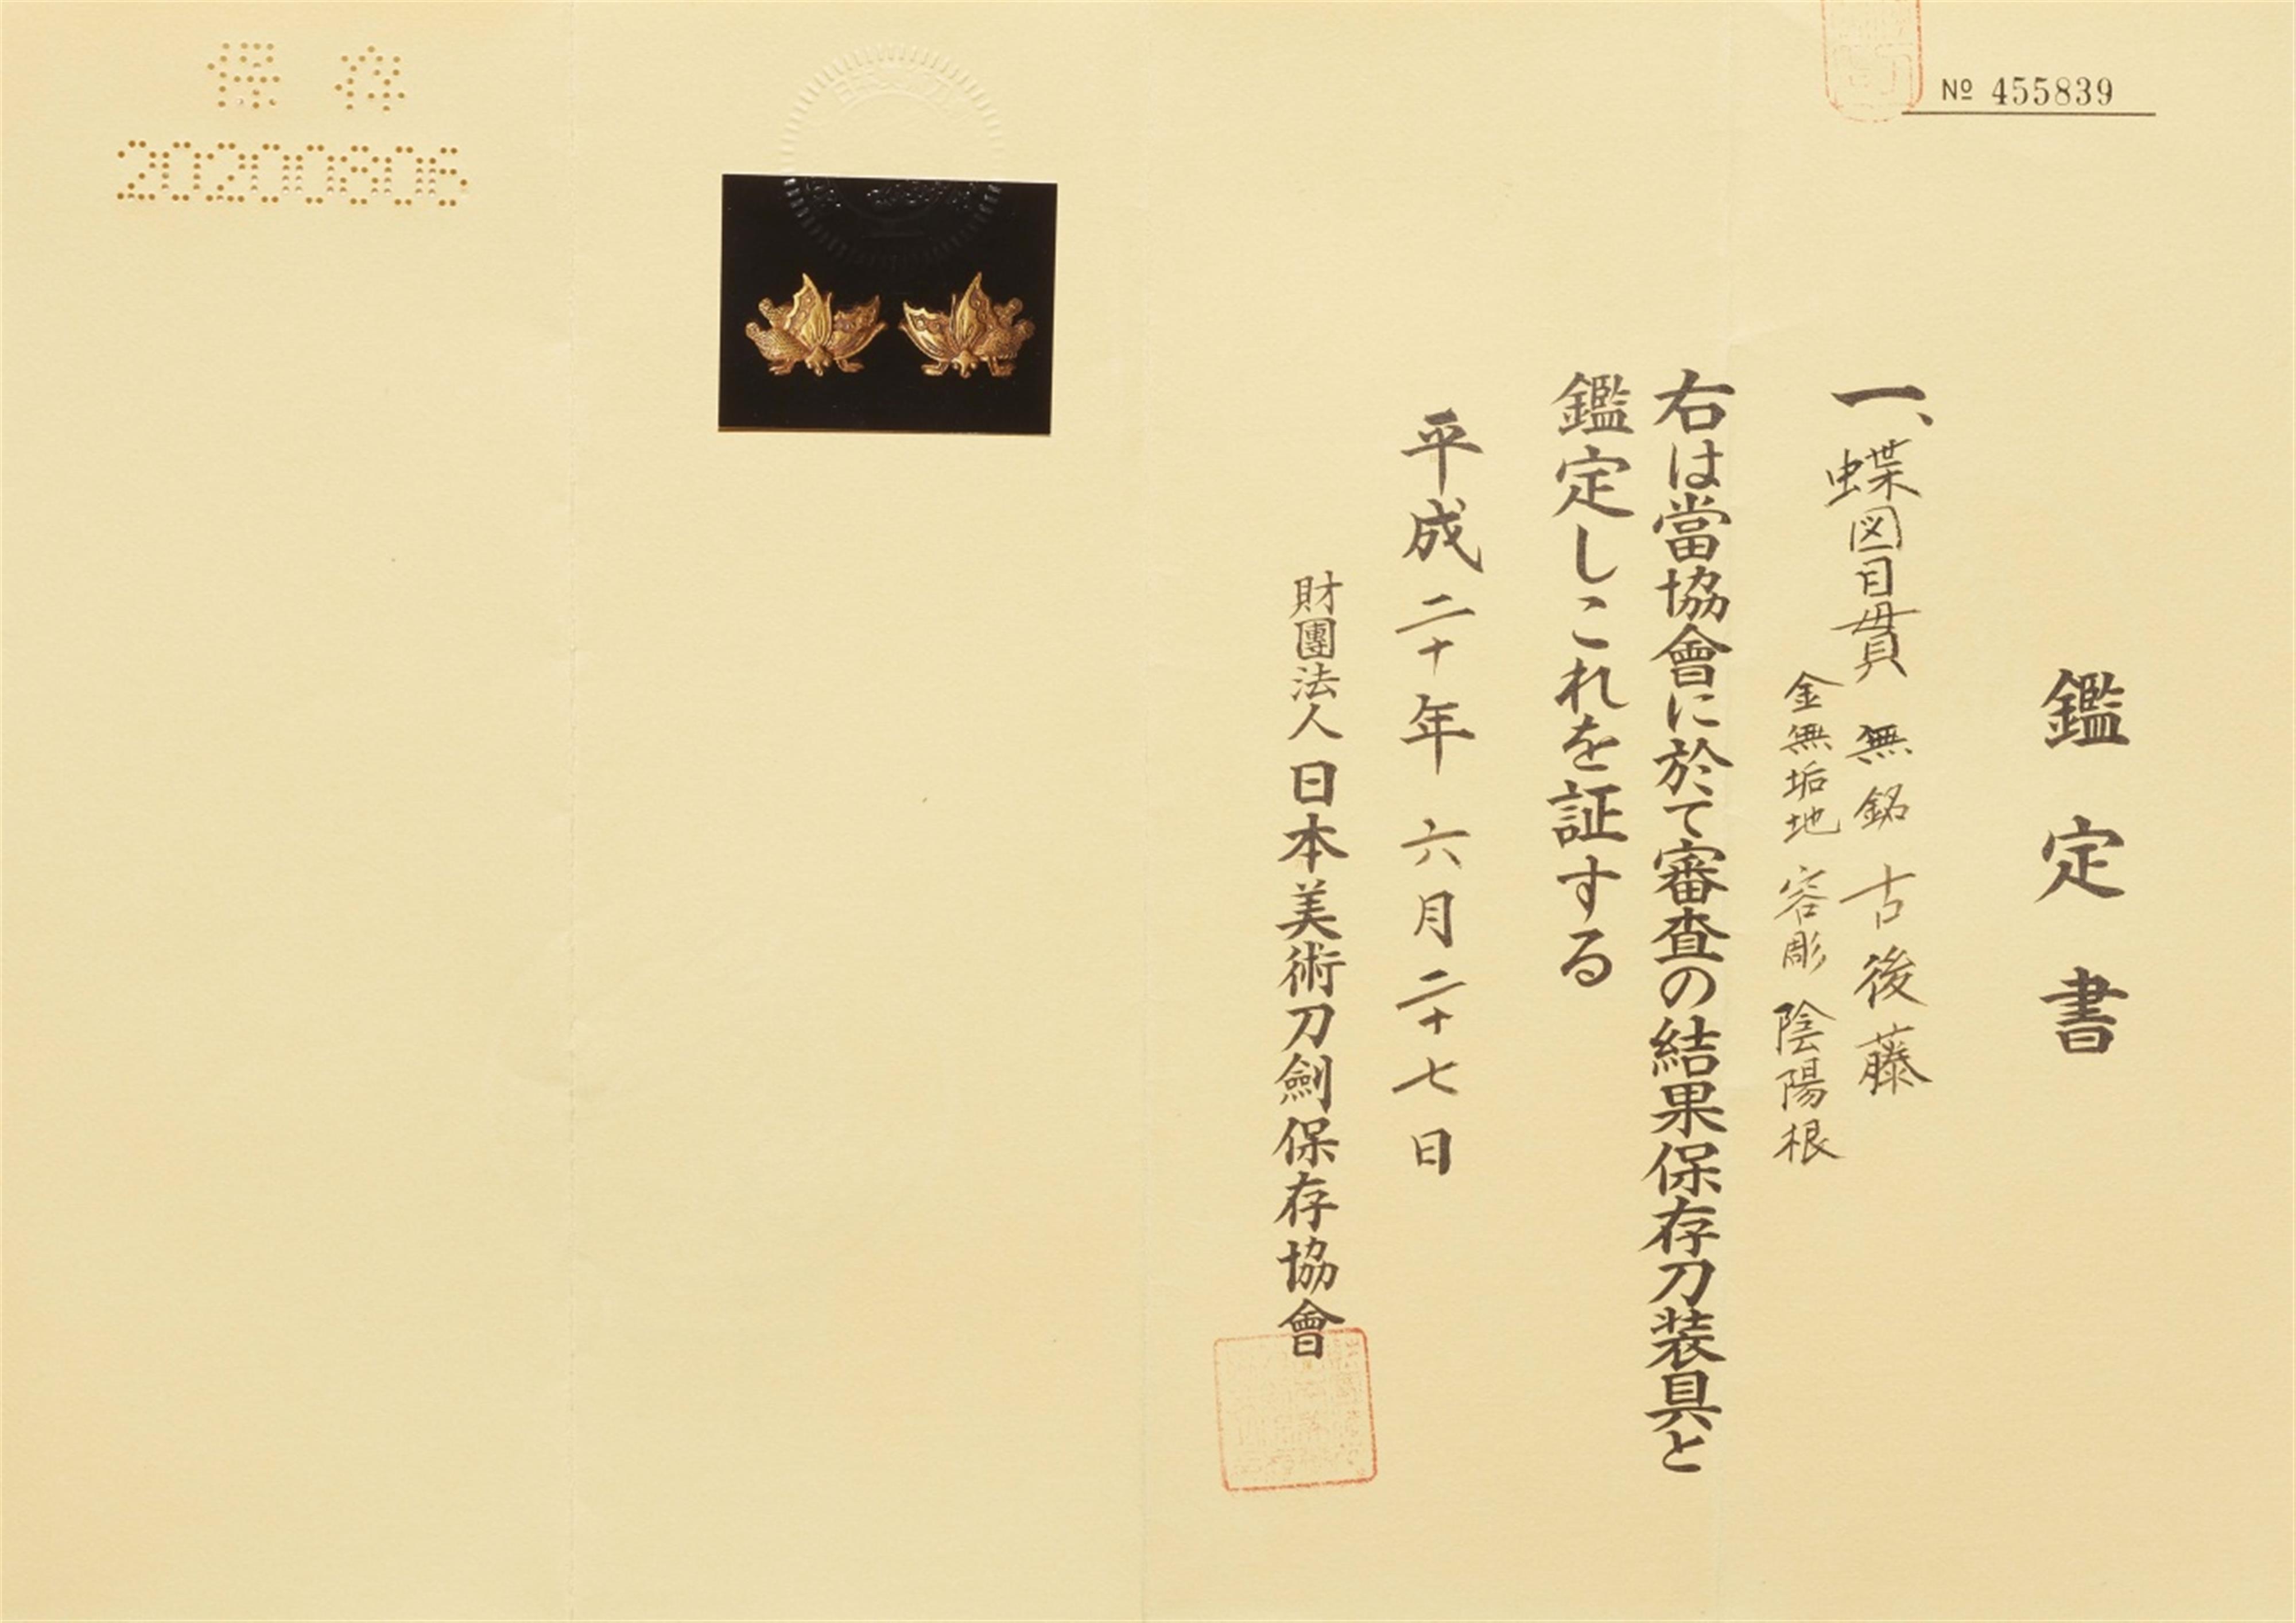 № 455839
鑑定書
一、蝶図目貫 無銘 古後藤
金無垢地 容彫 陰陽根
右は當協會に於て審査の結果保存刀装具と
鑑定しこれを証する
平成二十年六月二十七日
財團法人日本美術刀劍保存協會
保存
20200806